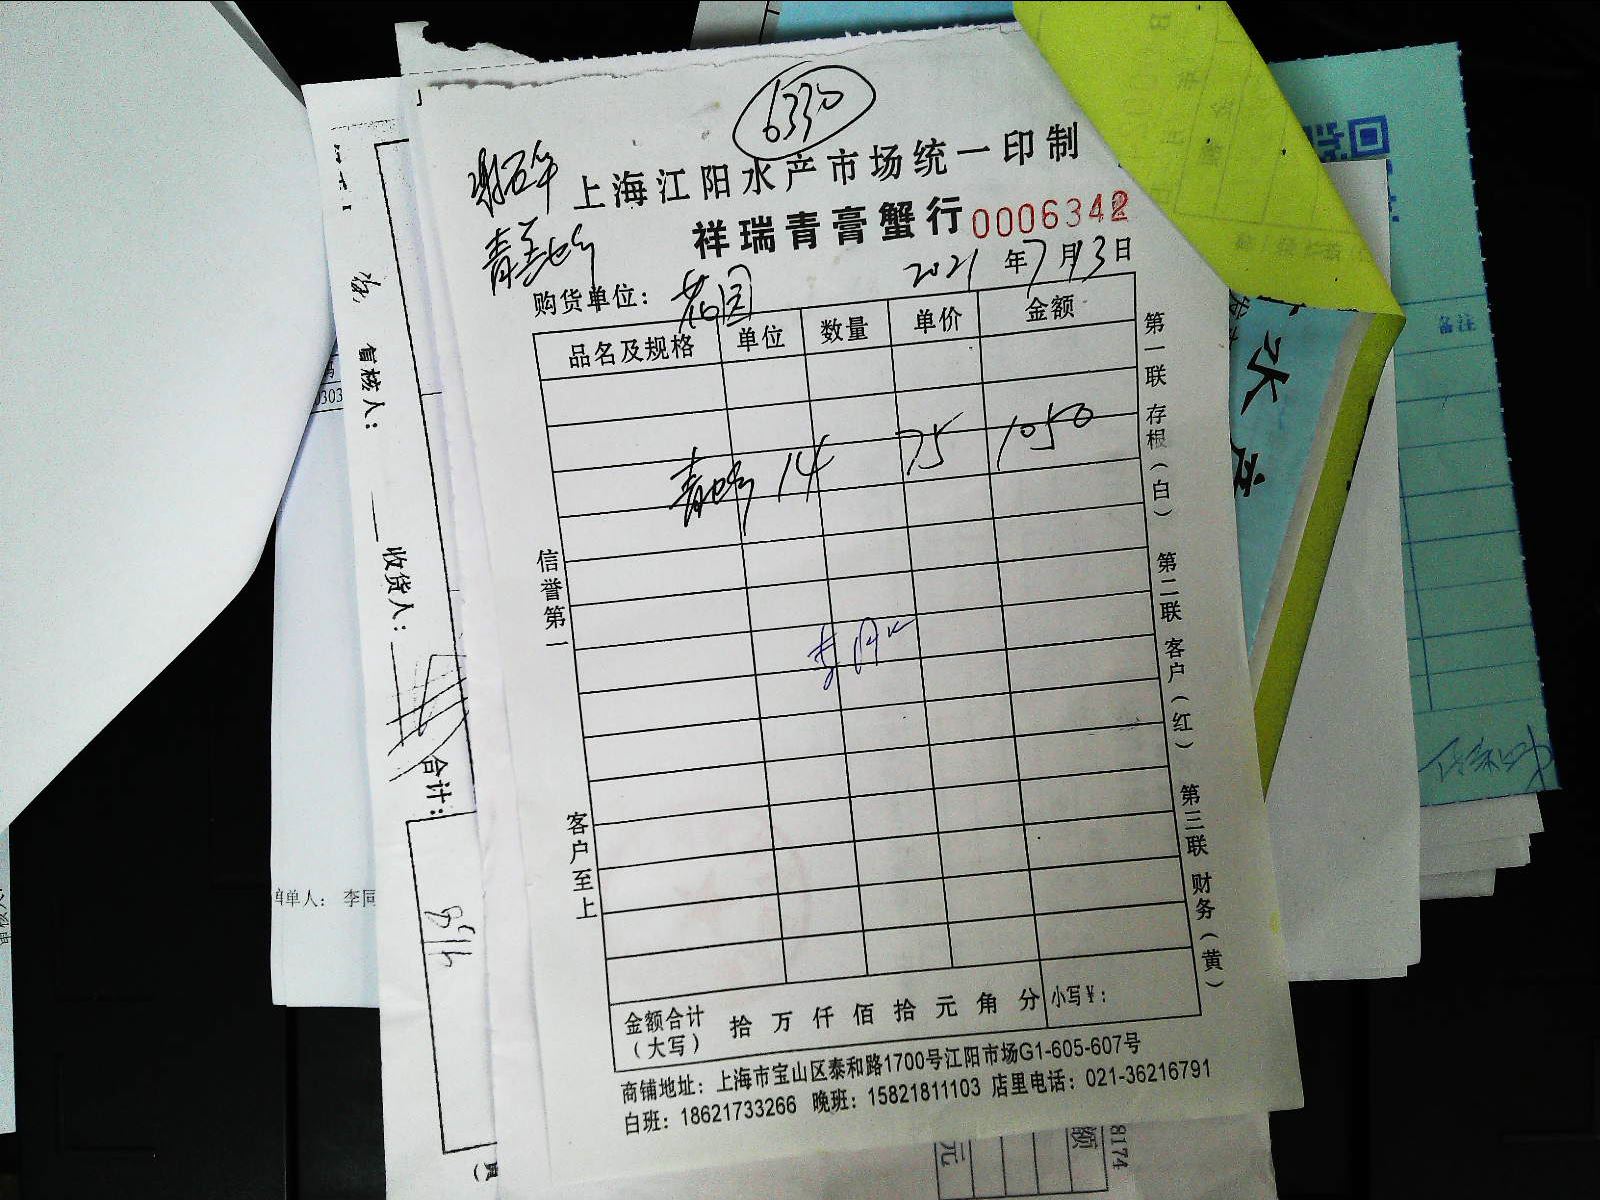 6330
上海江阳水产市场统一印制
祥瑞青膏蟹行 0006342
2021年7月13日
购货单位：
品名及规格 单位 数量 单价 金额
14 75 1050
信誉第一
客户至上
第一联 存根（白） 第二联 客户（红） 第三联 财务（黄）
金额合计（大写） 拾 万 仟 佰 拾 元 角 分 小写¥：
商铺地址：上海市宝山区泰和路1700号江阳市场G1-605-607号
白班：18621733266 晚班：15821811103 店里电话：021-36216791
审核人：
收货人：
合计：
0303
单人： 李同
备注
水
8174
额
元